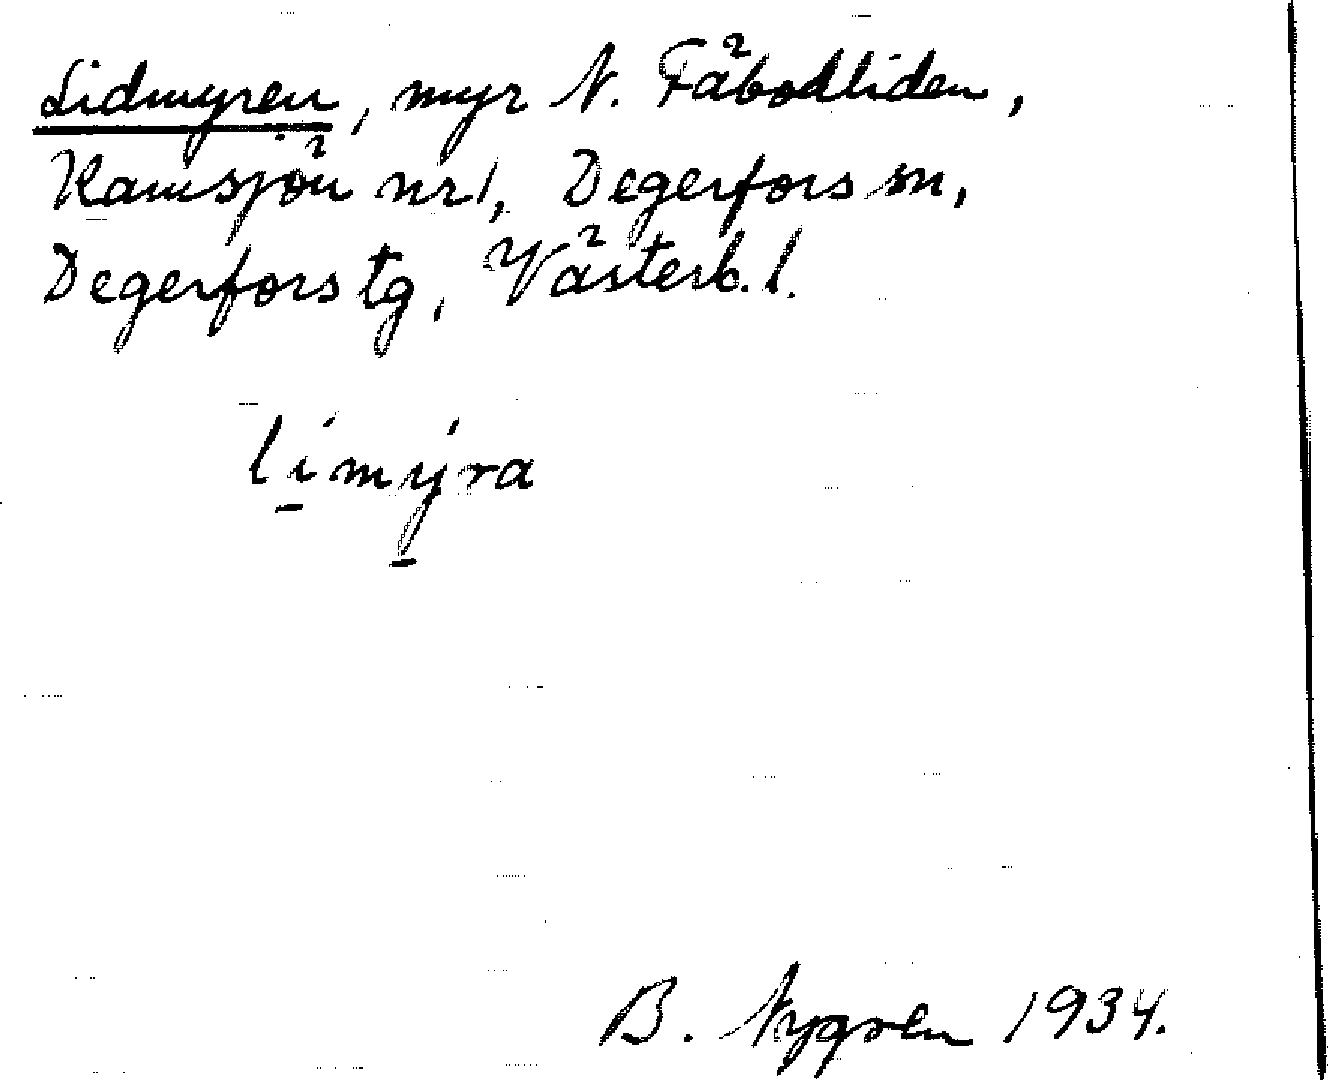 Lidmyren, myr N. Fäbodliden,
Ramsjön nr 1, Degerfors sn,
Degerfors tg, Västerb. l.
lí̱mý̱ra
B. Nygren 1934.